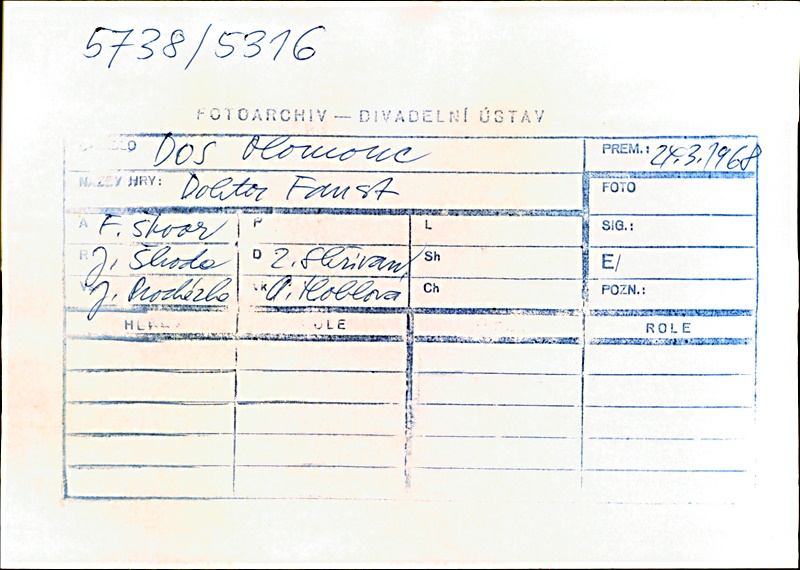 5738/5316
FOTOARCHIV — DIVADELNÍ ÚSTAV
DOS Olomouc PREM.: 24.3.1968
NÁZEV HRY: Doktor Faust FOTO
A F. Škvor P L SIG.:
R J. Škoda D Z. Skřivan Sh E/
J. Procházka Hoblová Ch POZN.:
ROLE